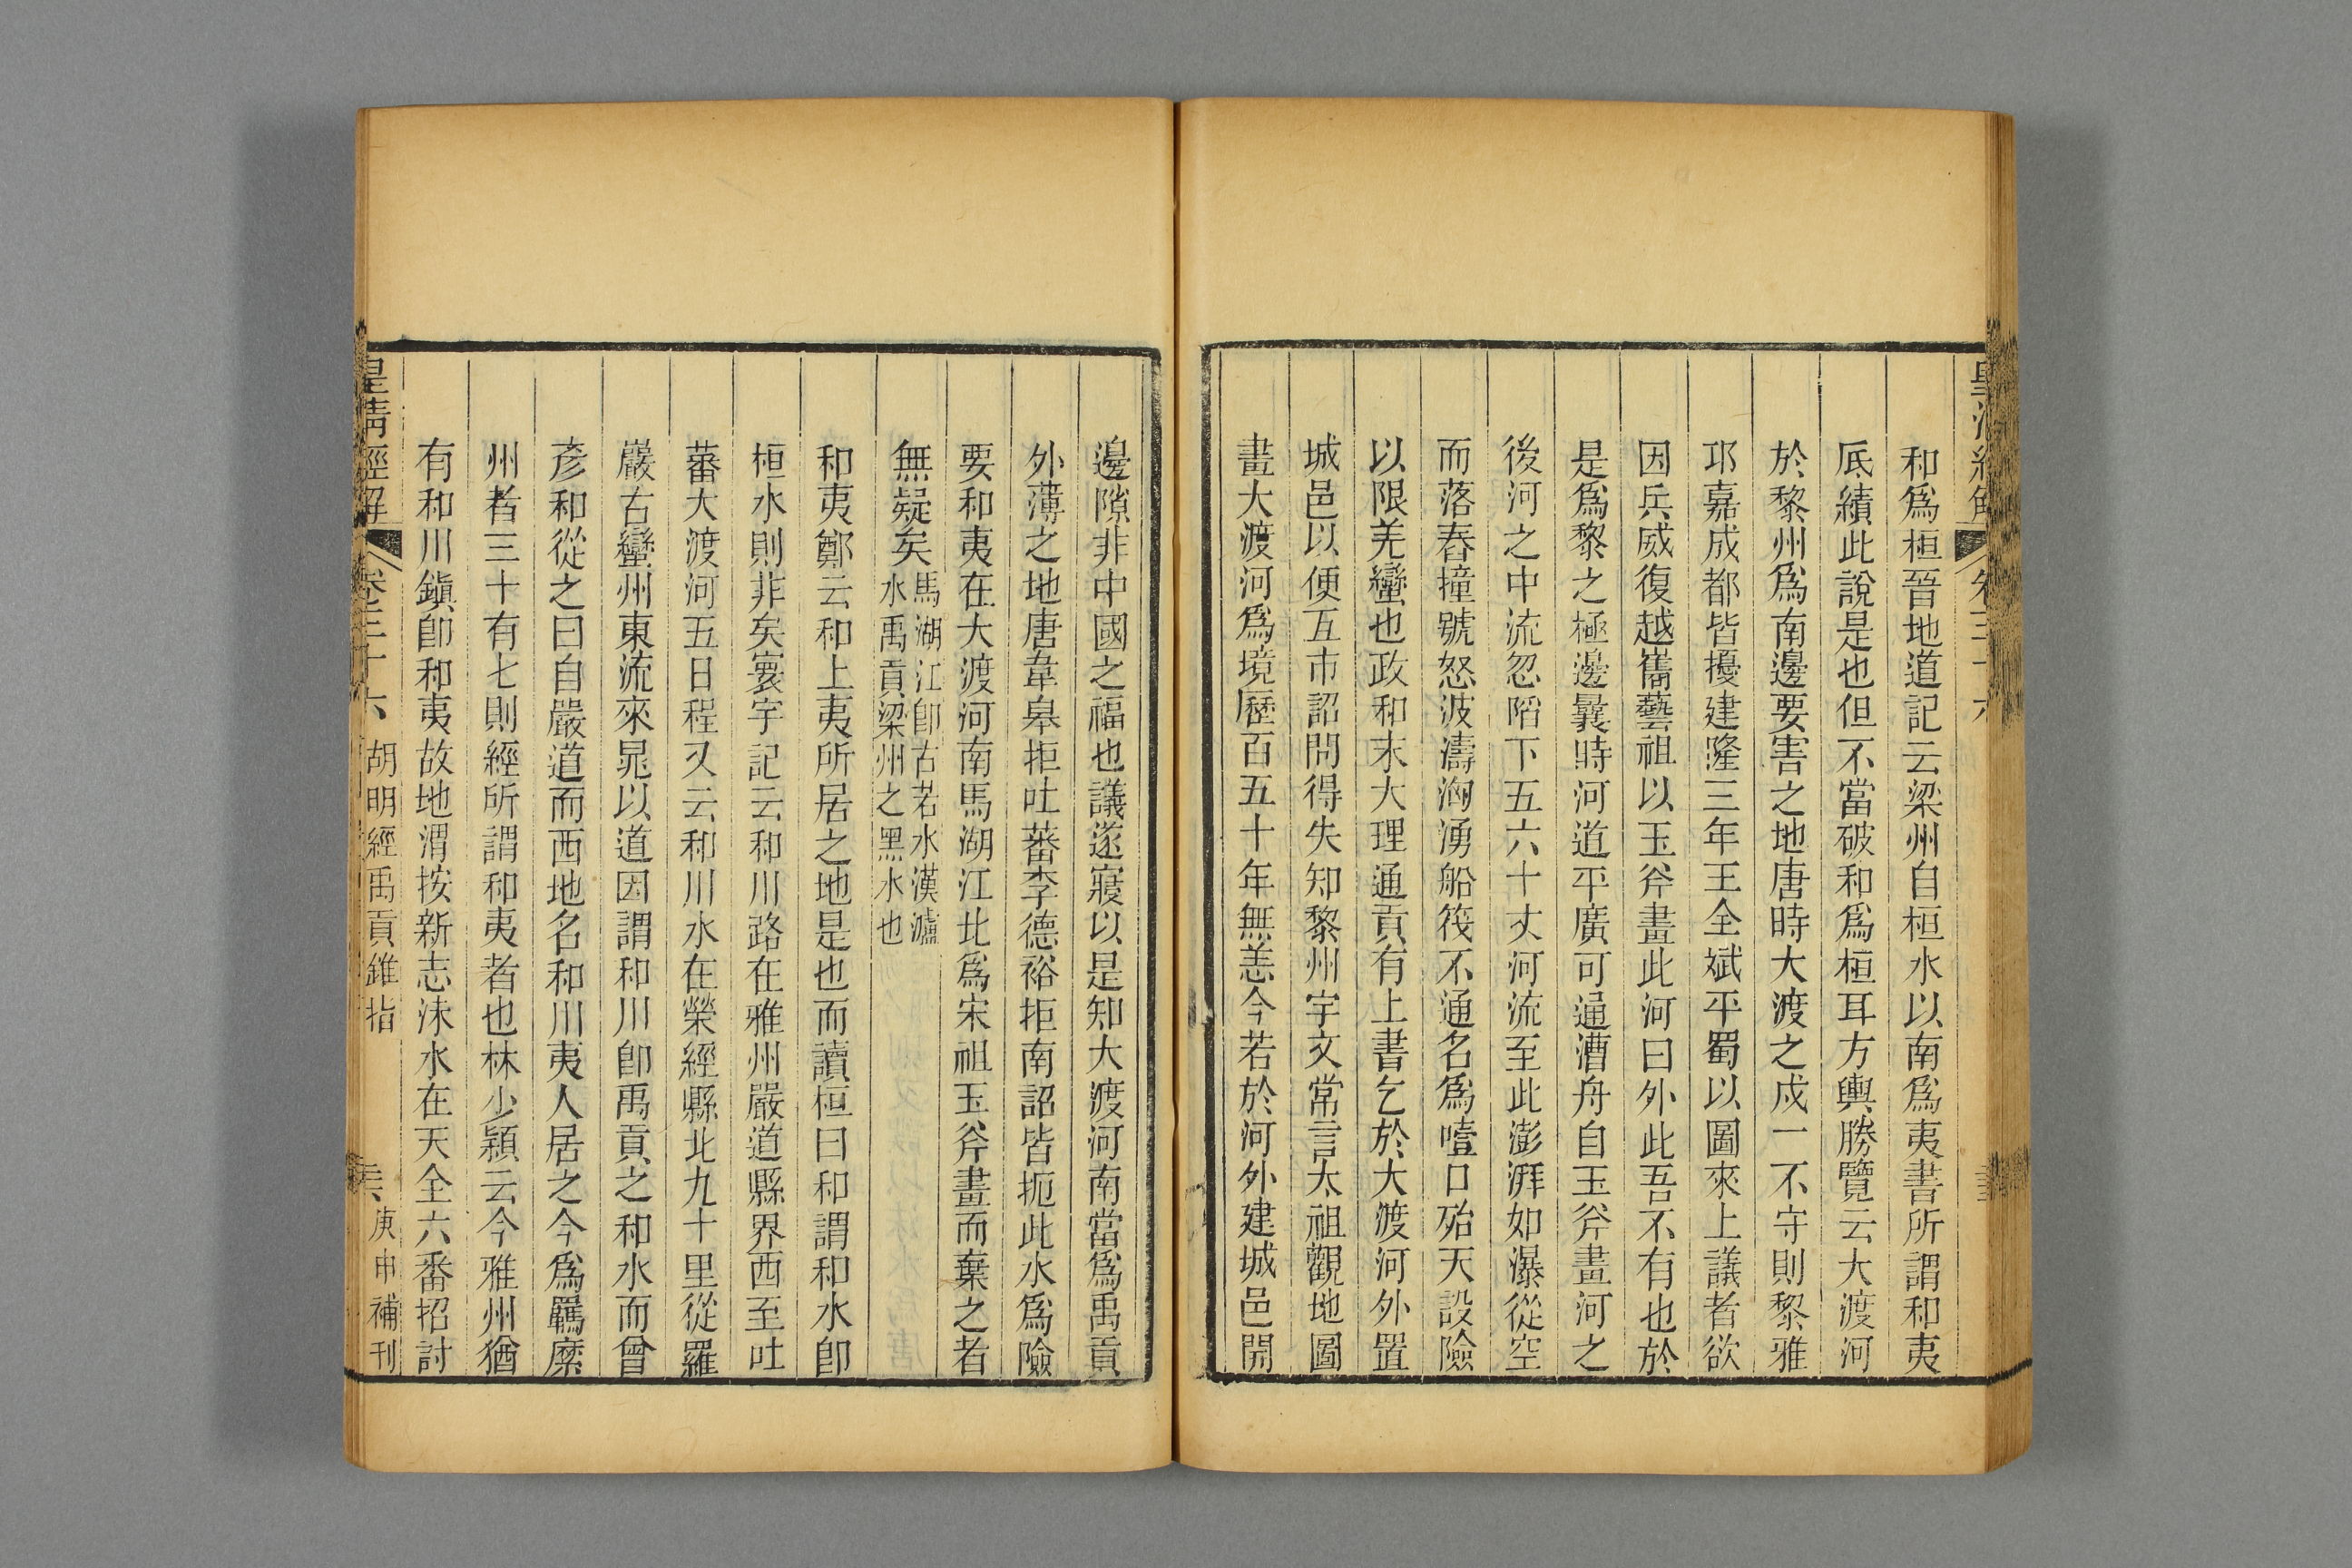 和爲桓晉地道記云梁州自桓水以南爲夷書所謂和夷
厎績此說是也但不當破和爲桓耳方輿勝覽云大渡河
於黎州爲南邊要害之地唐時大渡之戍一不守則黎雅
邛嘉成都皆擾建隆三年王全斌平蜀以圖來上議者欲
因兵威復越巂藝祖以玉斧畫此河曰外此吾不有也於
是爲黎之極邊曩時河道平廣可通漕舟自玉斧畫河之
後河之中流忽陷下五六十丈河流至此澎湃如瀑從空
而落舂撞號怒波濤洶湧船筏不通名爲噎口殆天設險
以限羌蠻也政和末大理通貢有上書乞於大渡河外置
城邑以便互市詔問得失知黎州宇文常言太祖觀地圖
畫大渡河爲境歷百五十年無恙今若於河外建城邑開
邊隙非中國之福也議遂寢以是知大渡河南當爲禹貢
外薄之地唐韋皋拒吐蕃李德裕拒南詔皆扼此水爲險
要和夷在大渡河南馬湖江北爲宋祖玉斧畫而棄之者
無疑矣馬湖江卽古若水漢瀘水禹貢梁州之黑水也
和夷鄭云和上夷所居之地是也而讀桓曰和謂和水卽
桓水則非矣寰宇記云和川路在雅州嚴道縣界西至吐
蕃大渡河五日程又云和川水在榮經縣北九十里從羅
嚴古蠻州東流來晁以道因謂和川卽禹貢之和水而曾
彥和從之曰自嚴道而西地名和川夷人居之今爲羈縻
州者三十有七則經所謂和夷者也林少穎云今雅州猶
有和川鎭卽和夷故地渭按新志沬水在天全六番招討
皇清經解 卷三十六 胡明經禹貢錐指 庚申補刊